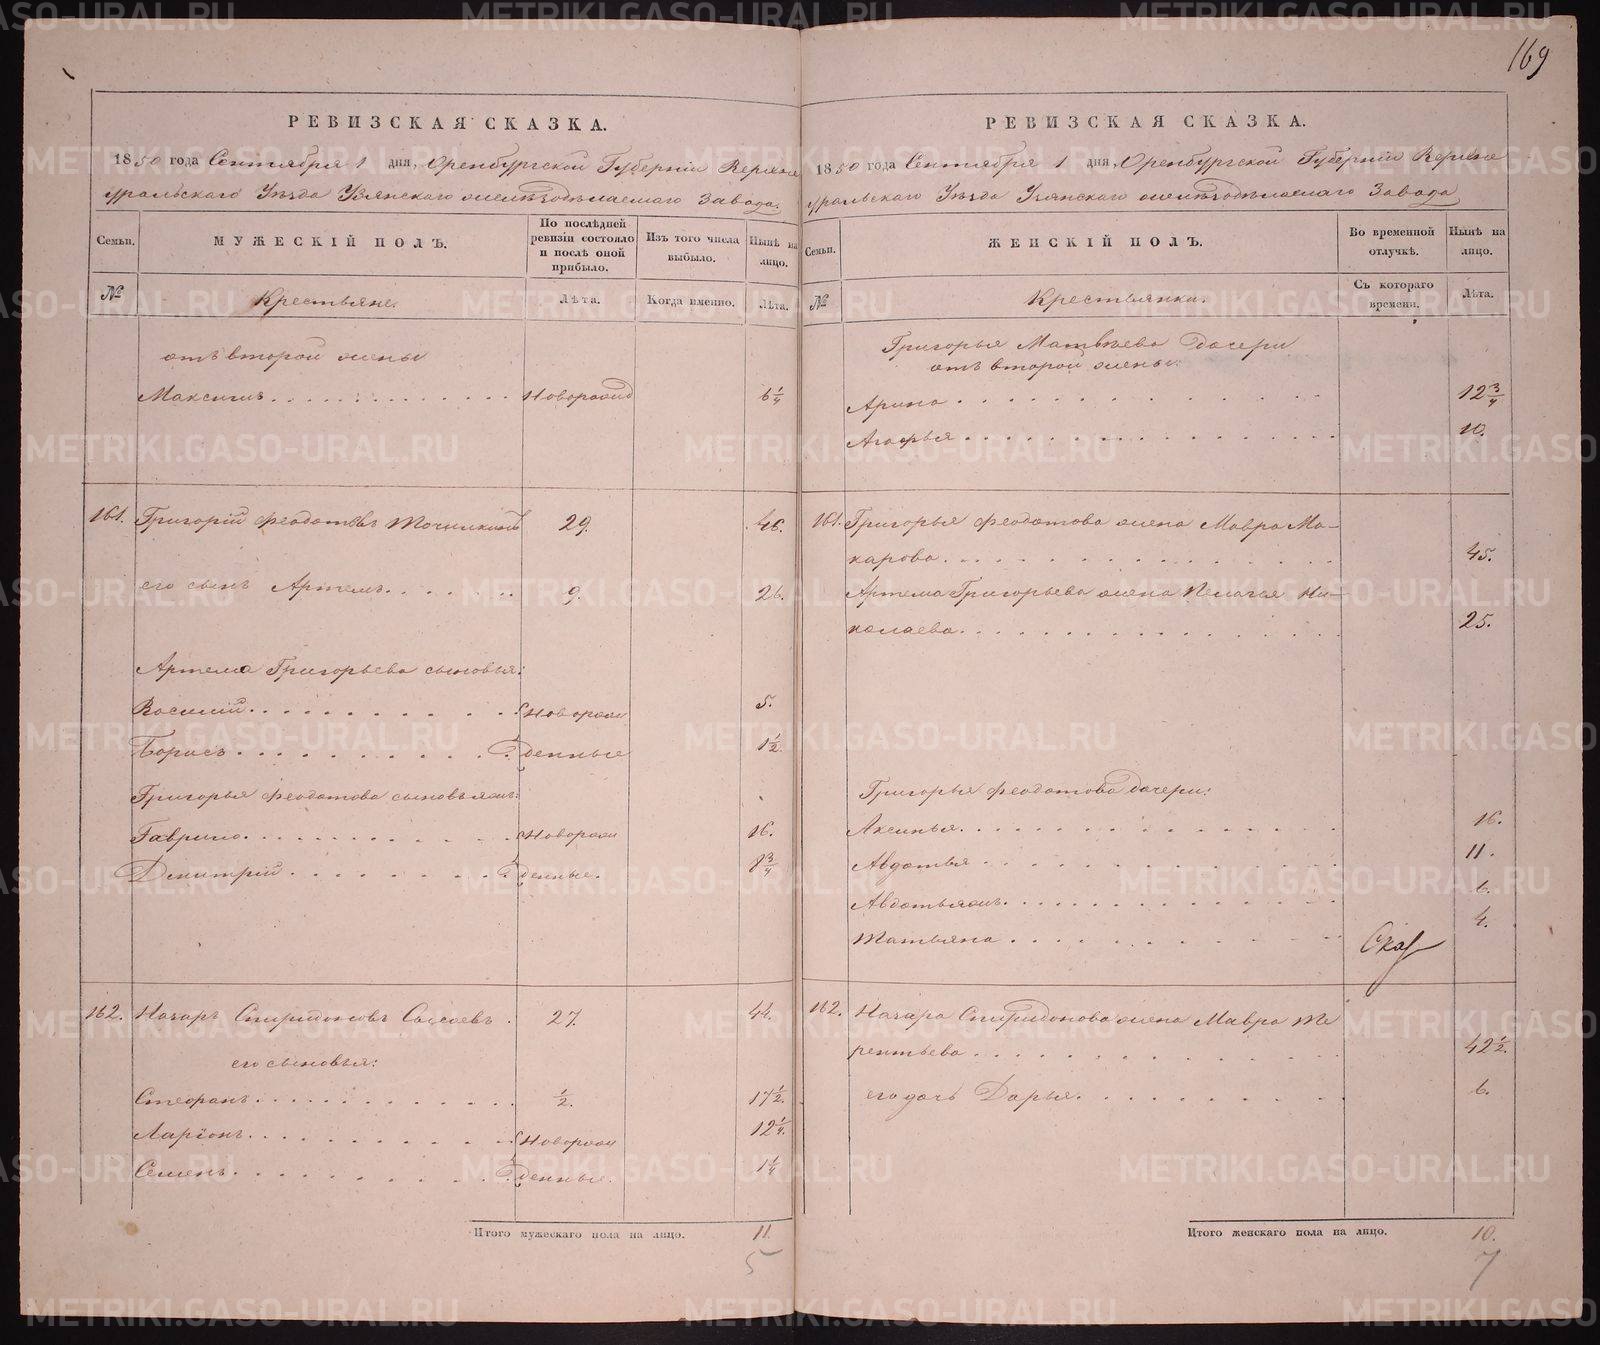 169
РЕВИЗСКАЯ СКАЗКА.
1850 года Сентября 1 дня, Оренбургской Губерніи Верхне
уральскаго Уѣзда Узянскаго желѣзодѣлаемаго Завода
Семьи.
МУЖЕСКІЙ ПОЛЪ.
По послѣдней ревизіи состояло и послѣ оной прибыло.
Изъ того числа выбыло.
Нынѣ на лицо.
№
Крестьяне.
Лѣта.
Когда именно.
Лѣта.
отъ второй жены
Максимъ Новорожд 6 1/4
161. Григорій Феодотовъ 29. 46.
его сынъ Артемъ 9. 26.
Артема Григорьева сыновья:
Василій Новорож 5.
Борисъ денные 1 1/2
Григорья Феодотова сыновья
Гаврило Новорож 16.
Дмитрій денные. 1 3/4
162. Назаръ Спиридоновъ 27. 44.
его сыновья:
Стефанъ 1/2. 17 1/2.
Ларіонъ Новорож 12 1/4.
Семенъ денные. 1 1/4
Итого мужескаго пола на лицо. 11.
5
РЕВИЗСКАЯ СКАЗКА.
1850 года Сентября 1 дня, Оренбургской Губерніи Верхне
уральскаго Уѣзда Узянскаго желѣзодѣлаемаго Завода
Семьи.
ЖЕНСКІЙ ПОЛЪ.
Во временной отлучкѣ.
Нынѣ на лицо.
№
Крестьянки.
Съ котораго времени.
Лѣта.
Григорья Матвѣева дочери
отъ второй жены
Арина 12 3/4
Агафья 10.
161. Григорья Феодотова жена Мавра Ма-
карова 45.
Артема Григорьева жена Пелагея Ни-
колаева 25.
Григорья Феодотова дочери:
Аксинья 16.
Авдотья 11.
Авдотья 6.
Татьяна 4.
162. Назара Спиридонова жена Мавра Те
рентьева 42 1/2.
его дочь Дарья 6.
Итого женскаго пола на лицо. 10.
7
METRIKI.GASO-URAL.RU